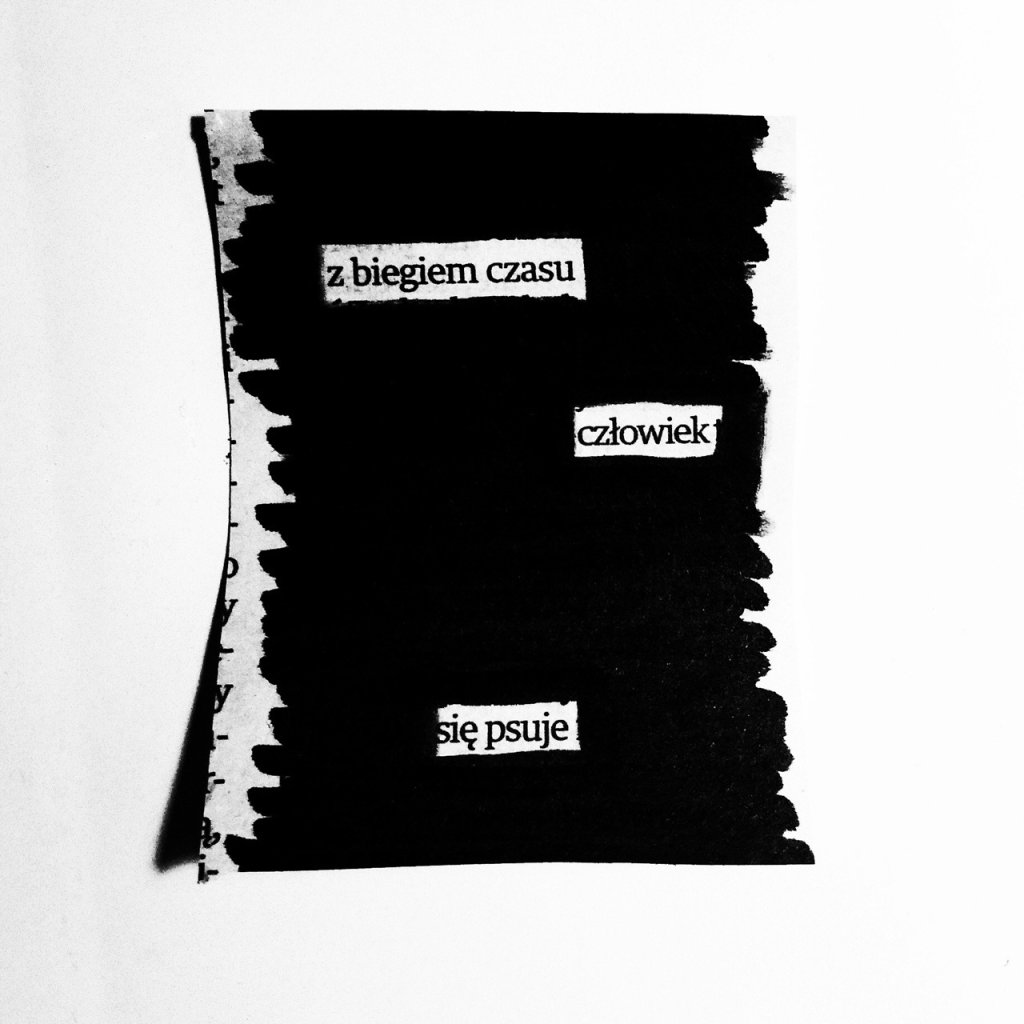 z biegiem czasu
człowiek
się psuje